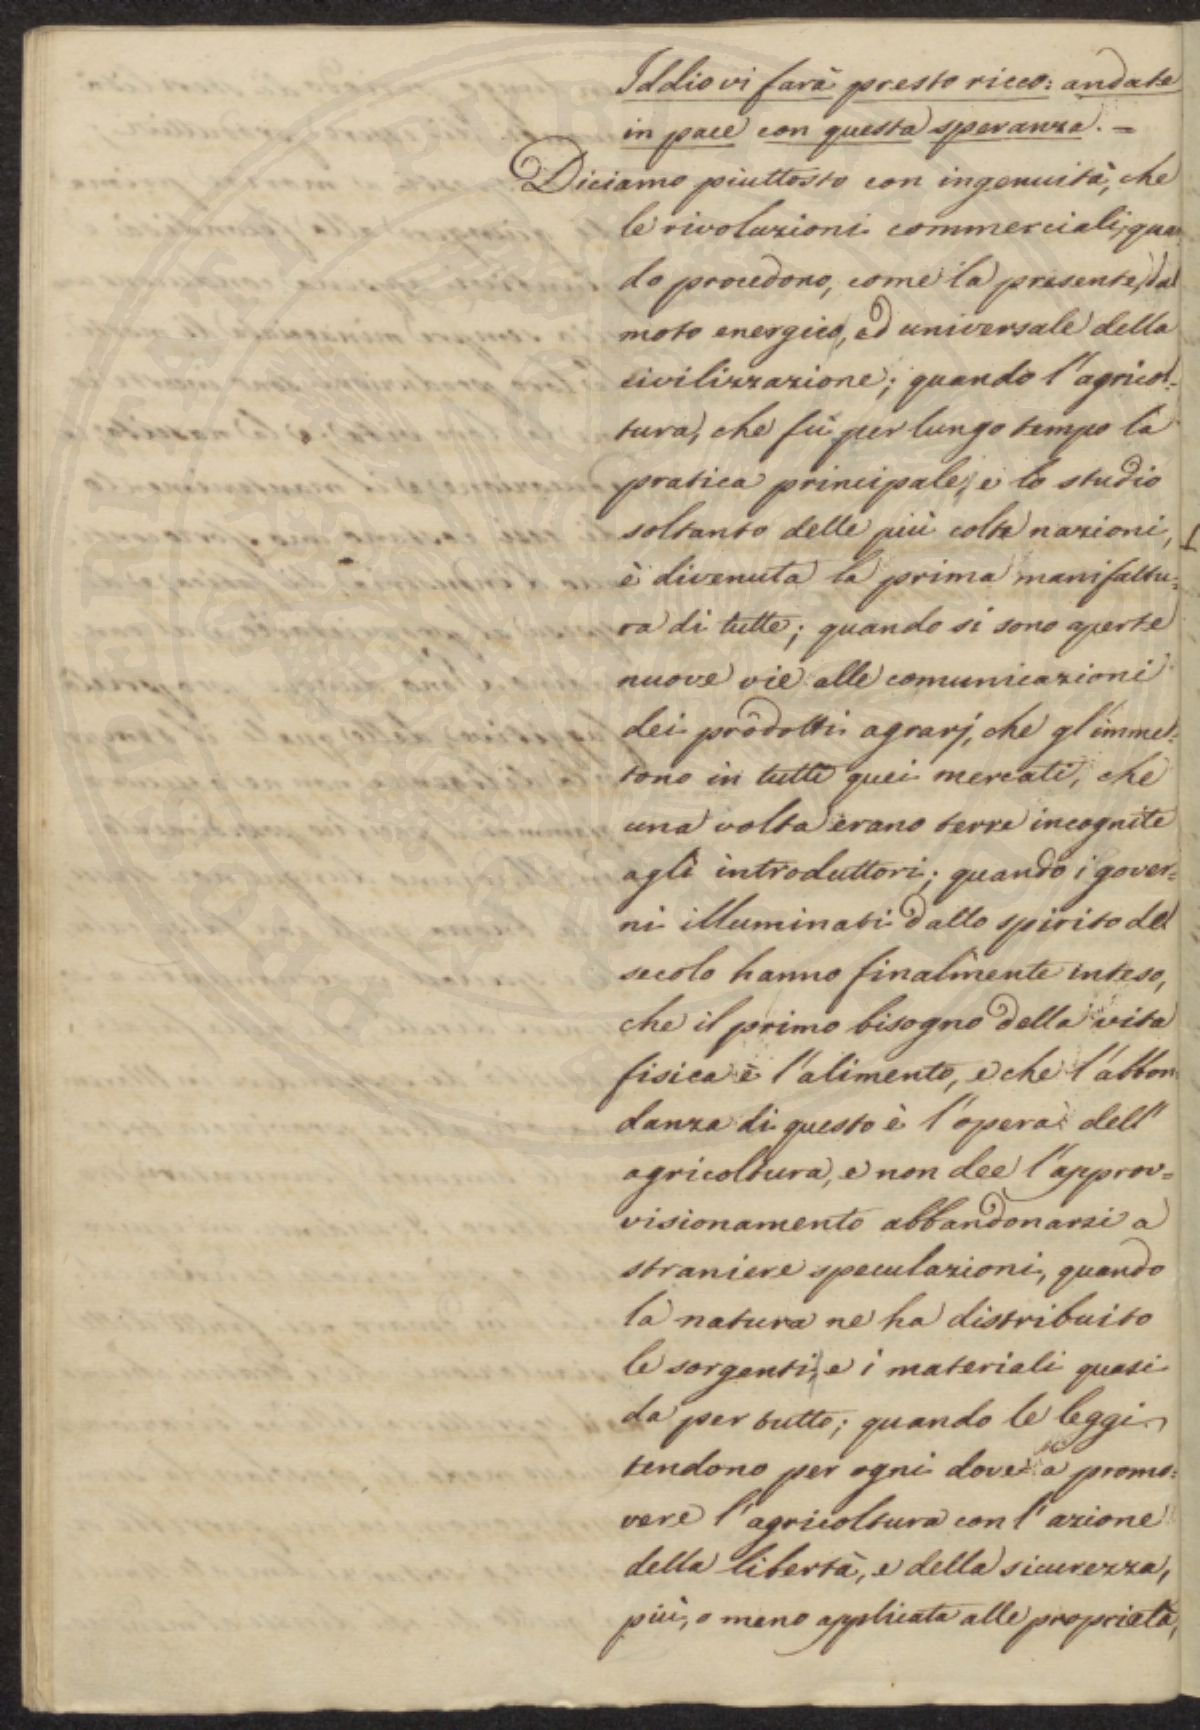 Iddio vi farà presto ricco: andate
in pace con questa speranza. =
Diciamo piuttosto con ingenuità, che
le rivoluzioni commerciali, quan
do procedono, come la presente, dal
moto energico, ed universale della
civilizzazione; quando l'agricol=
tura, che fù per lungo tempo la
pratica principale, e lo studio
soltanto delle più colte nazioni,
è divenuta la prima manifattu=
ra di tutte; quando si sono aperte
nuove vie alle comunicazioni
dei prodotti agrarj, che gl'immet=
tono in tutti quei mercati, che
una volta erano terre incognite
agli introduttori; quando i gover=
ni illuminati dallo spirito del
secolo hanno finalmente inteso,
che il primo bisogno della vita
fisica è l'alimento, e che l'abbon
danza di questo è l'opera dell'
agricoltura, e non dee l'approv=
visionamento abbandonarsi a
straniere speculazioni, quando
la natura ne ha distribuito
le sorgenti, e i materiali quasi
da per tutto; quando le leggi
tendono per ogni dove a promo=
vere l'agricoltura con l'azione
della libertà, e della sicurezza,
più, o meno applicata alle proprietà,